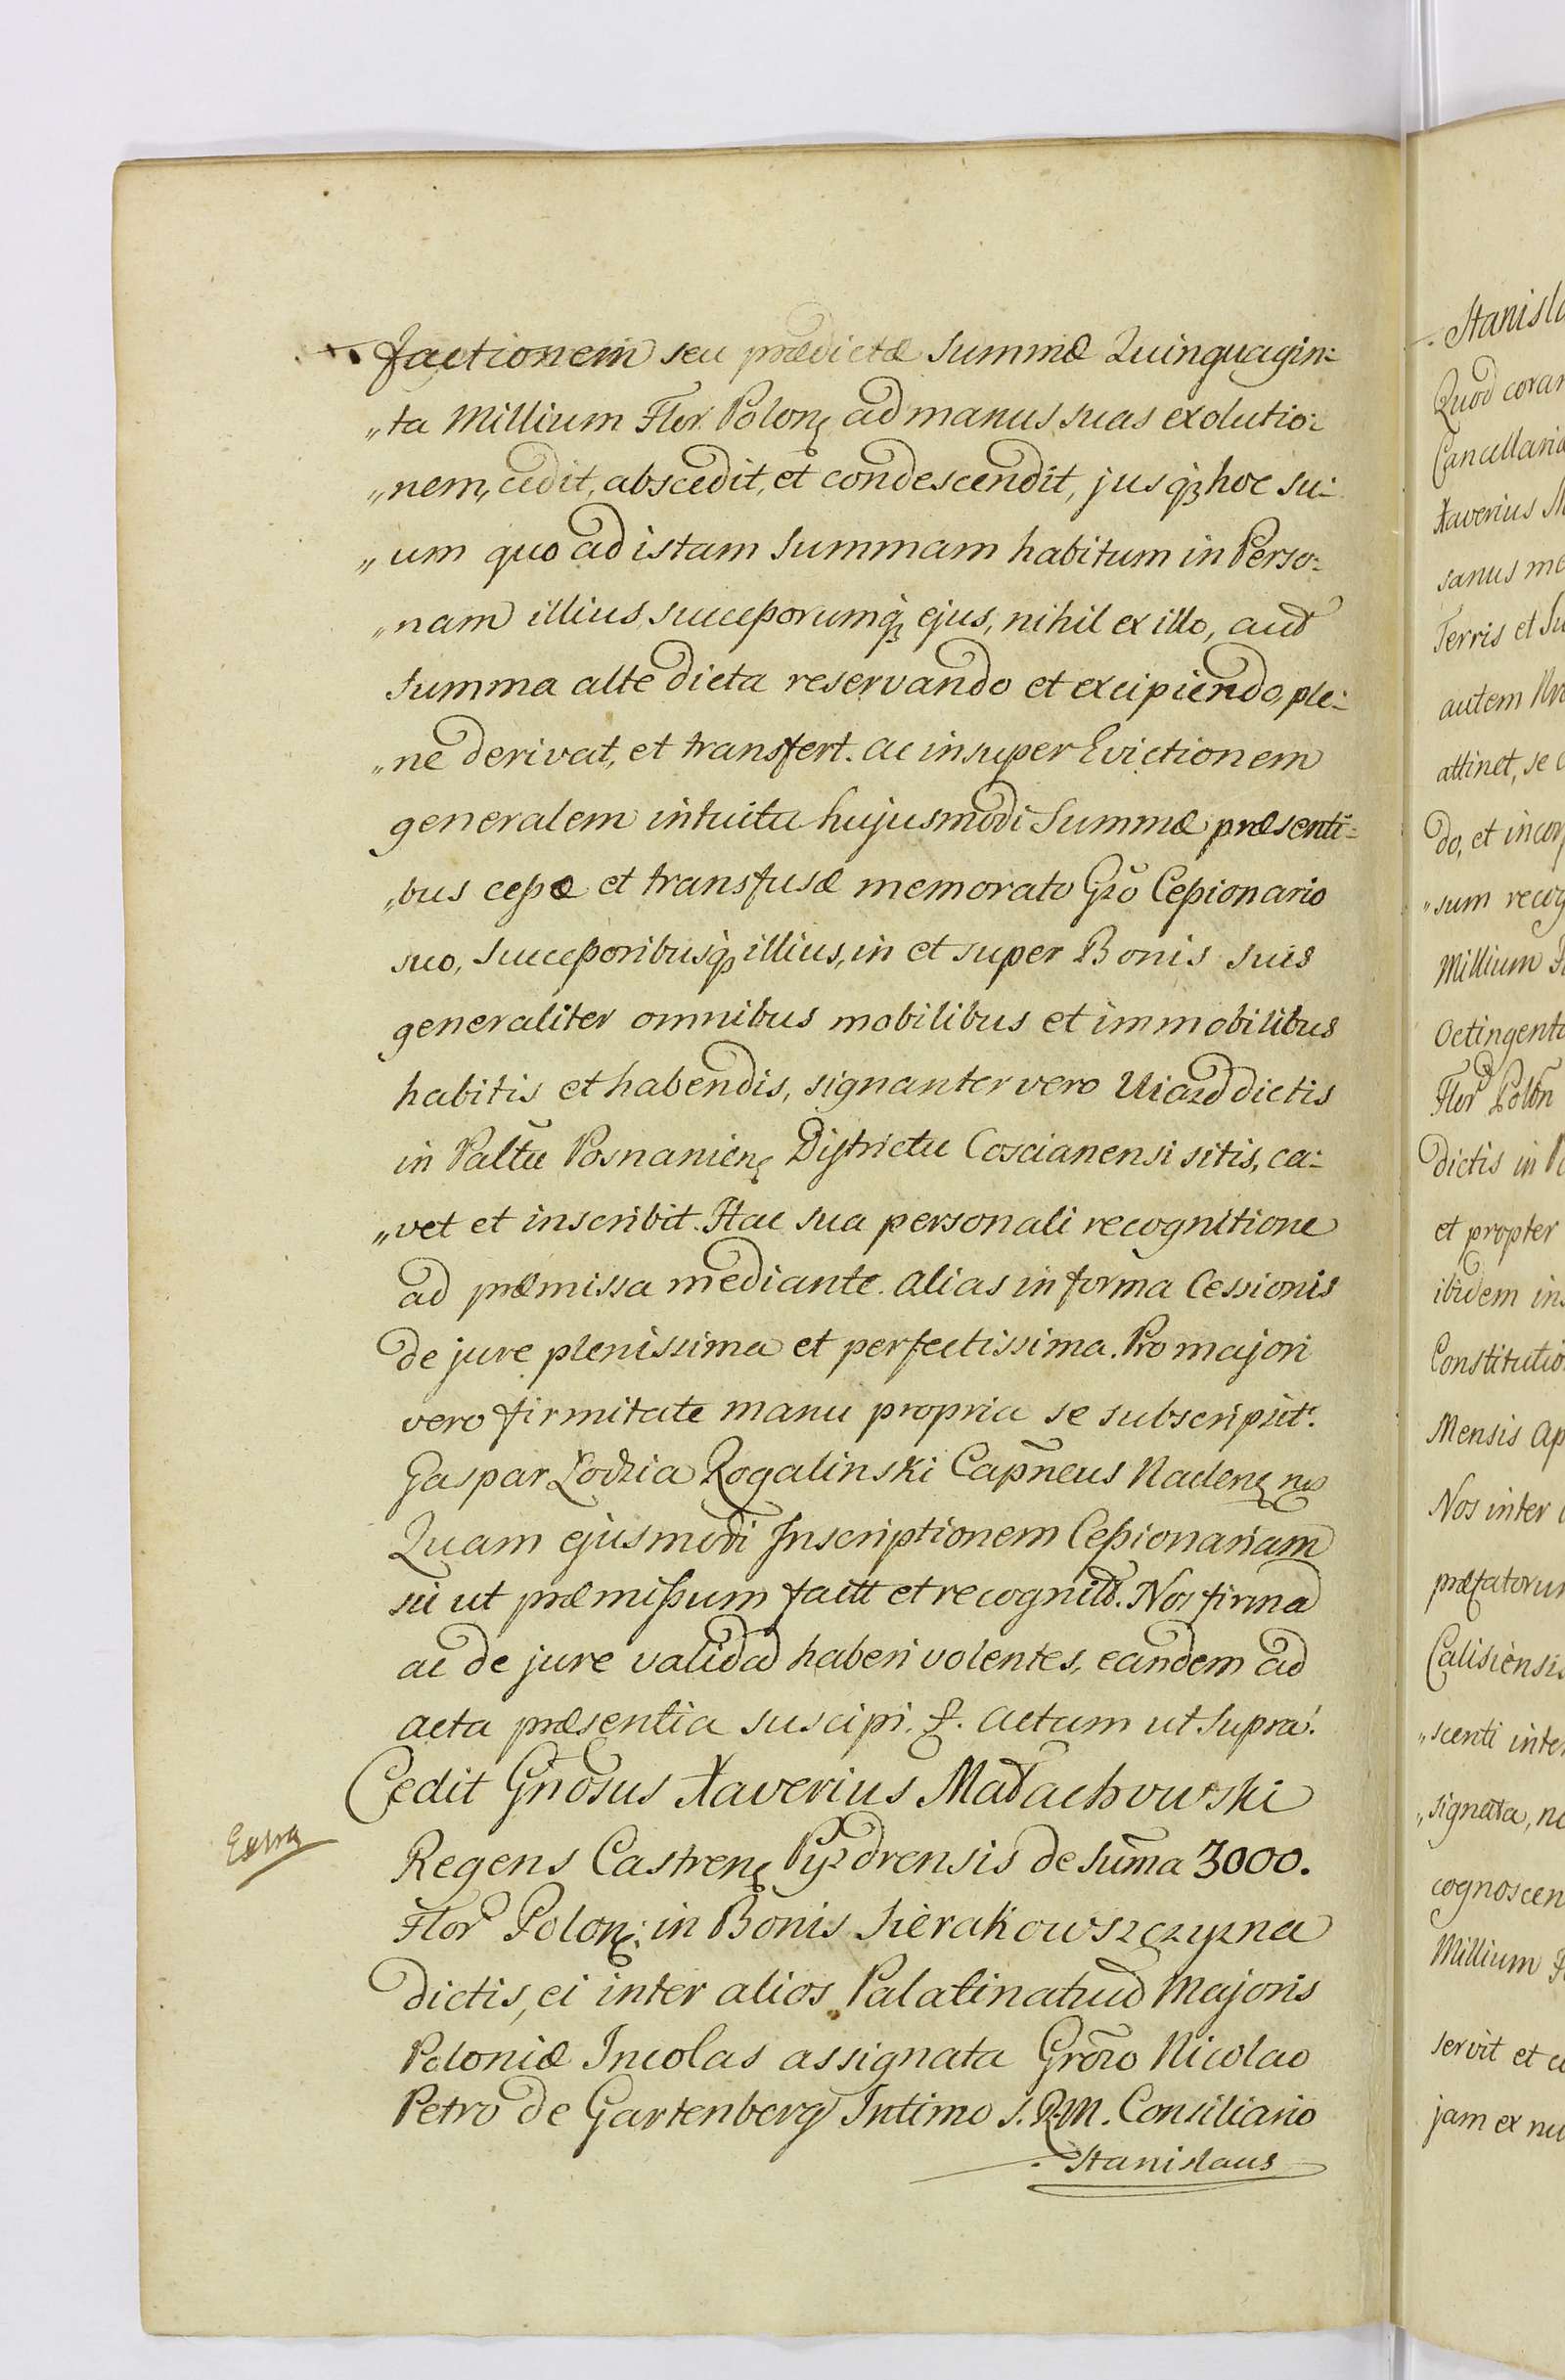 factionem seu prædictæ Summæ Quinquagin=
„ta Millium Flor. Polon: ad manus suas exolutio=
„nem, cedit, abscedit, et condescendit, jusq; hoc su=
„um quo ad istam Summam habitum in Perso=
„nam illius, successorumq; ejus, nihil ex illo, aut
Summa alte dicta reservando et excipiendo, ple=
„ne derivat, et transfert. ac insuper Evictionem
generalem intuitu hujusmodi Summæ præsenti=
„bus cessæ et transfusæ memorato Gzo Cessionario
suo, Successoribusq; illius, in et super Bonis suis
generaliter omnibus mobilibus et immobilibus
habitis et habendis, signanter vero Uiazd dictis
in Paltu Posnanien: Districtu Coscianensi sitis, ca=
„vet et inscribit. Hac sua personali recognitione
ad præmissa mediante. alias in forma Cessionis
de jure plenissima et perfectissima. Pro majori
vero firmitate manu propria se subscripsit.
Gaspar Lodzia Rogalinski Capneus Naclen: mp
Quam ejusmodi Inscriptionem Cessionariam
sii ut præmissum factt et recognitd. Nos firmā
ac de jure validā haberi volentes, eandem ad
acta præsentia suscipi. &. Actum ut Supra.
Cedit Gnosus Xaverius Małachowski
Extra
Regens Castren: Pyzdrensis de Suma 3000.
Flor Polon: in Bonis Sierakowszczyzna
dictis, ei inter alios Palatinatuū Majoris
Poloniæ Incolas assignata Grozo Nicolao
Petro de Gartenberg Intimo S.R.M. Consiliario
Stanislaus
Stanisla
Quod coram
Cancellaria
Xaverius
sanus
Terris et
autem
attinet, se
do, et incor
„sum recog
Millium
Octingent
Flor Polon
dictis in
et propter
ibidem ins
Constitutio
Mensis Ap
Nos inter
præfatorum
Calisiensis
„scenti inter
„signata,
cognoscen
Millium
servit et
jam ex